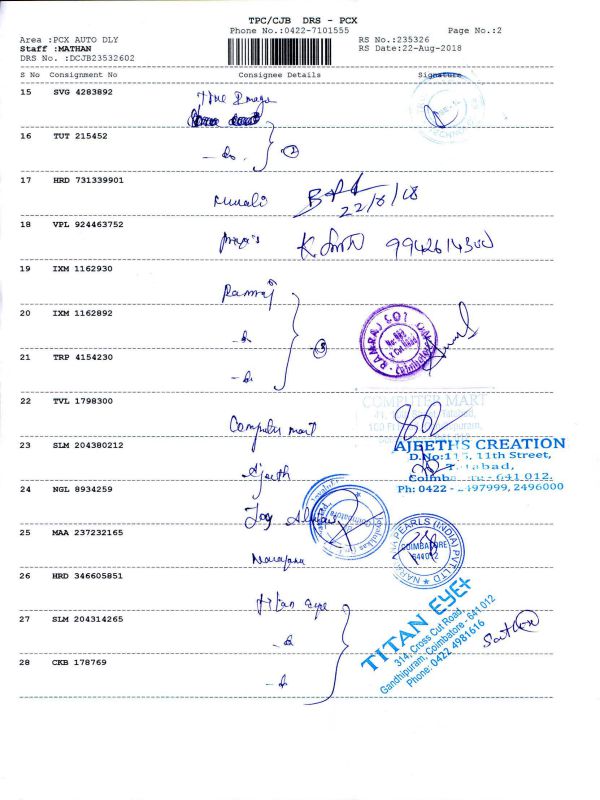 TPC/CJB DRS - PCX
Phone No.:0422-7101555
Page No.:2
Area :PCX AUTO DLY
RS No.:235326
Staff :MATHAN
RS Date:22-Aug-2018
DRS No. :DCJB23532602
S No Consignment No Consignee Details Signature
15 SVG 4283892
16 TUT 215452
- do.
17 HRD 731339901
Murali
22/8/18
18 VPL 924463752
Priya's
9942614300
19 IXM 1162930
Ramraj
RAMRAJ
20 IXM 1162892
- do
21 TRP 4154230
- do
22 TVL 1798300
COMPUTER MART
Computer mart
AJEETHS CREATION
23 SLM 204380212
D.No:115, 11th Street,
Tatabad,
Ajeeth
Coimbatore - 641 012.
24 NGL 8934259
Ph: 0422 - 2497999, 2496000
Joy
25 MAA 237232165
PEARLS (INDIA) PVT LTD
COIMBATORE
641 012
Narayana
26 HRD 346605851
Titan eye
TITAN EYE+
27 SLM 204314265
314, Cross Cut Road,
Gandhipuram, Coimbatore - 641 012
Phone: 0422 4981616
- do
28 CKB 178769
- do